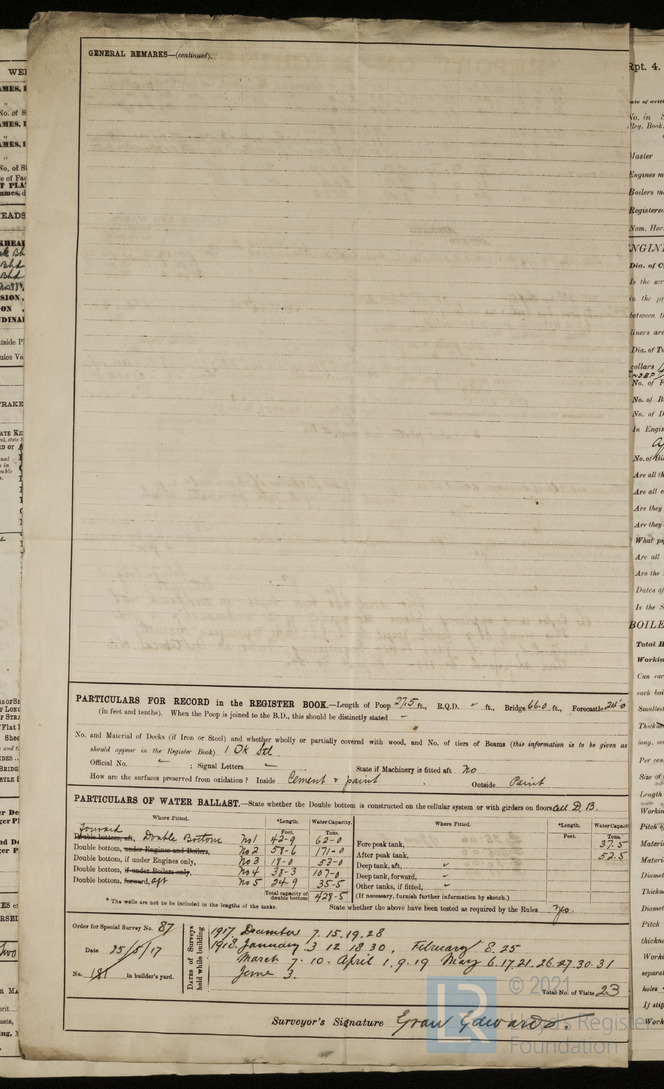 GENERAL REMARKS—(continued).
PARTICULARS FOR RECORD in the REGISTER BOOK.—Length of Poop 27.5 ft., R.Q.D. - ft., Bridge 66.0 ft., Forecastle
(in feet and tenths). When the Poop is joined to the B.D., this should be distinctly stated -
No. and Material of Decks (if Iron or Steel) and whether wholly or partially covered with wood, and No. of tiers of Beams (this information is to be given as
should appear in the Register Book) 1 Dk Stl
Official No. - ; Signal Letters - State if Machinery is fitted aft No
How are the surfaces preserved from oxidation? Inside Cement & paint Outside Paint
PARTICULARS OF WATER BALLAST.—State whether the Double bottom is constructed on the cellular system or with girders on floors Cell D.B.
Where Fitted. *Length. Water Capacity. Where Fitted. *Length. Water Capacity
Feet. Tons. Feet. Tons.
Forward
Double bottom, aft, Double Bottom No 1 42-9 62-0
Double bottom, under Engines and Boilers, No 2 58-6 171-0
Double bottom, if under Engines only, No 3 18-0 53-0
Double bottom, if under Boilers only, No 4 38-3 107-0
Double bottom, forward, aft No 5 24-9 35-5
Total capacity of double bottom 428-5
Fore peak tank, 37.5
After peak tank, 52.5
Deep tank, aft,
Deep tank, forward,
Other tanks, if fitted,
(If necessary, furnish further information by sketch.)
* The wells are not to be included in the lengths of the tanks.
State whether the above have been tested as required by the Rules Yes.
Order for Special Survey No. 87
Date 25/5/17
No. 181 in builder's yard.
Dates of Surveys held while building
1917. December 7. 15. 19. 28
1918. January 3 12 18 30, February 8. 25
March 7. 10. April 1. 9. 19 May 6. 17. 21. 26. 27. 30. 31
June 3.
Total No. of Visits 23
Surveyor's Signature
© 2021
Lloyd's Register
Foundation
LR
Rpt. 4.
Master
BOILE